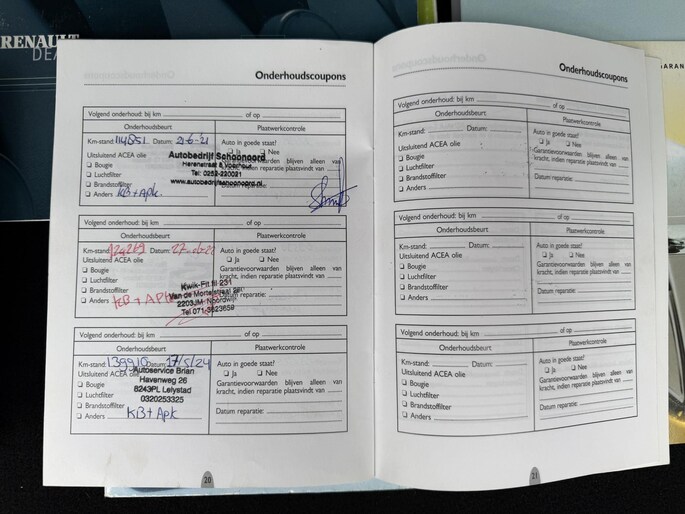 RENAULT
Onderhoudscoupons
Volgend onderhoud: bij km of op
Onderhoudsbeurt Plaatwerkcontrole
Km-stand: 114851 Datum: 2-6-21 Auto in goede staat?
Ja Nee
Uitsluitend ACEA olie
Bougie
Luchtfilter
Brandstoffilter
Anders KB + Apk
Garantievoorwaarden blijven alleen van
kracht, indien reparatie plaatsvindt van
Datum reparatie:
Autobedrijf Schoonoord
Tel: 0252-220021
Volgend onderhoud: bij km of op
Onderhoudsbeurt Plaatwerkcontrole
Km-stand: Datum: Auto in goede staat?
Ja Nee
Uitsluitend ACEA olie
Bougie
Luchtfilter
Brandstoffilter
Anders KB + APK
Garantievoorwaarden blijven alleen van
kracht, indien reparatie plaatsvindt van
Datum reparatie:
Kwik-Fit
Tel.071-3623659
Volgend onderhoud: bij km of op
Onderhoudsbeurt Plaatwerkcontrole
Km-stand: 139910 Datum: 17/5/24 Auto in goede staat?
Ja Nee
Uitsluitend ACEA olie
Bougie
Luchtfilter
Brandstoffilter
Anders KB + Apk
Garantievoorwaarden blijven alleen van
kracht, indien reparatie plaatsvindt van
Datum reparatie:
Autoservice Brian
Havenweg 26
8243PL Lelystad
0320253325
20
Onderhoudscoupons
Volgend onderhoud: bij km of op
Onderhoudsbeurt Plaatwerkcontrole
Km-stand: Datum: Auto in goede staat?
Uitsluitend ACEA olie Ja Nee
Bougie Garantievoorwaarden blijven alleen van
Luchtfilter kracht, indien reparatie plaatsvindt van
Brandstoffilter
Anders Datum reparatie:
Volgend onderhoud: bij km of op
Onderhoudsbeurt Plaatwerkcontrole
Km-stand: Datum: Auto in goede staat?
Uitsluitend ACEA olie Ja Nee
Bougie Garantievoorwaarden blijven alleen van
Luchtfilter kracht, indien reparatie plaatsvindt van
Brandstoffilter
Anders Datum reparatie:
Volgend onderhoud: bij km of op
Onderhoudsbeurt Plaatwerkcontrole
Km-stand: Datum: Auto in goede staat?
Uitsluitend ACEA olie Ja Nee
Bougie Garantievoorwaarden blijven alleen van
Luchtfilter kracht, indien reparatie plaatsvindt van
Brandstoffilter
Anders Datum reparatie:
21